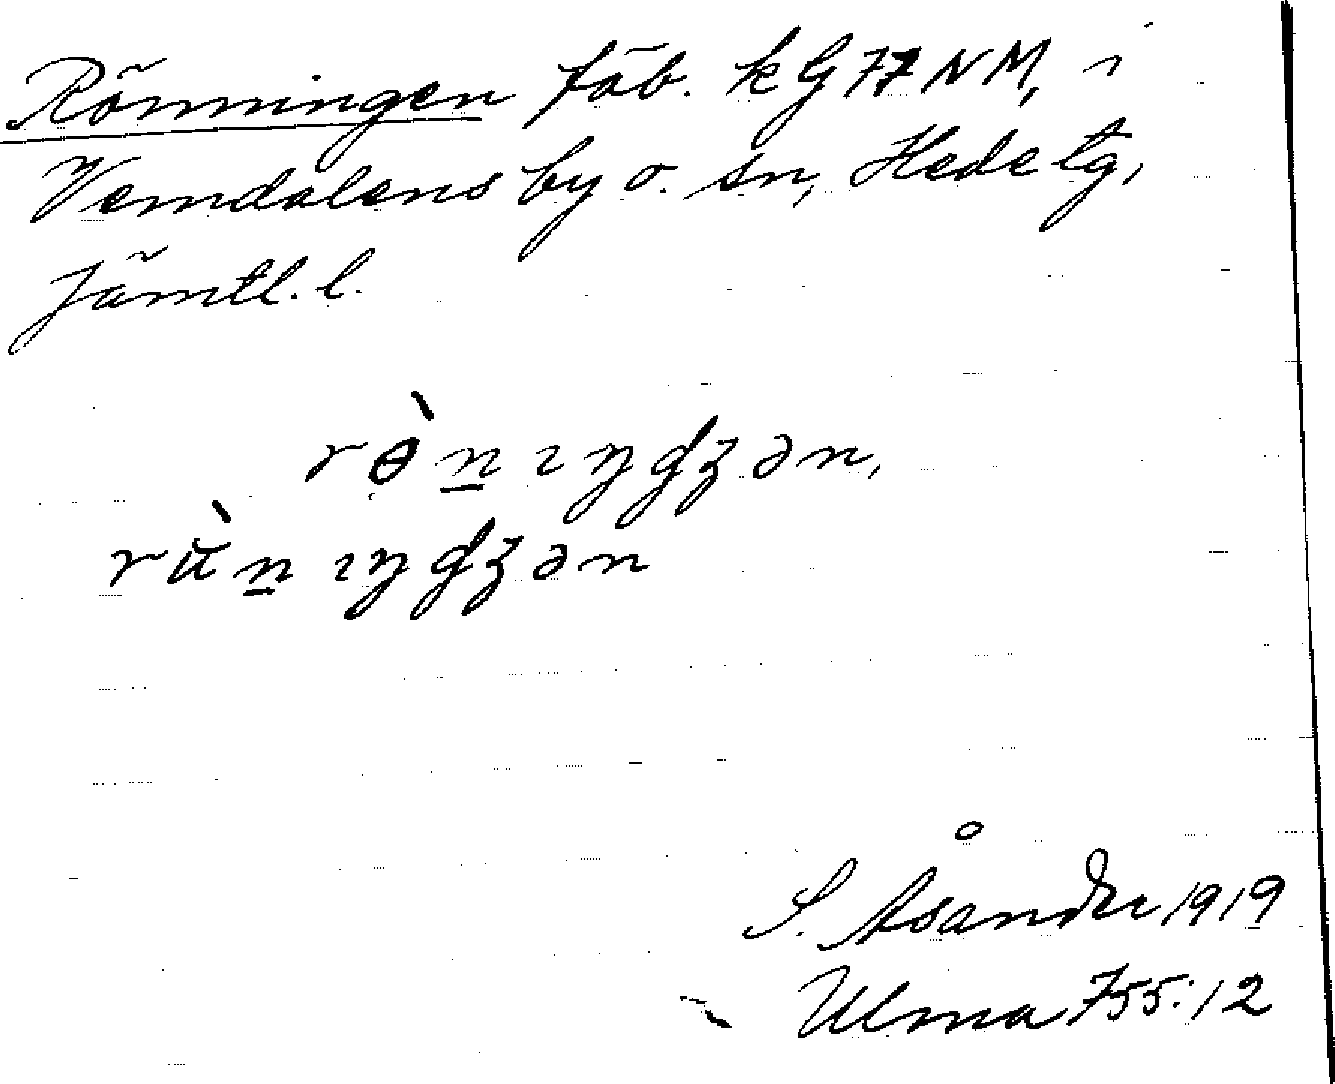 Rönningen fäb. k G 77 NM, i
Vemdalens by o. sn, Hede tg,
Jämtl. l.
rɵ̣̀n̲ıŋdʒən,
rùn̲ıŋdʒən
S. Åsander 1919
Ulma 755:12